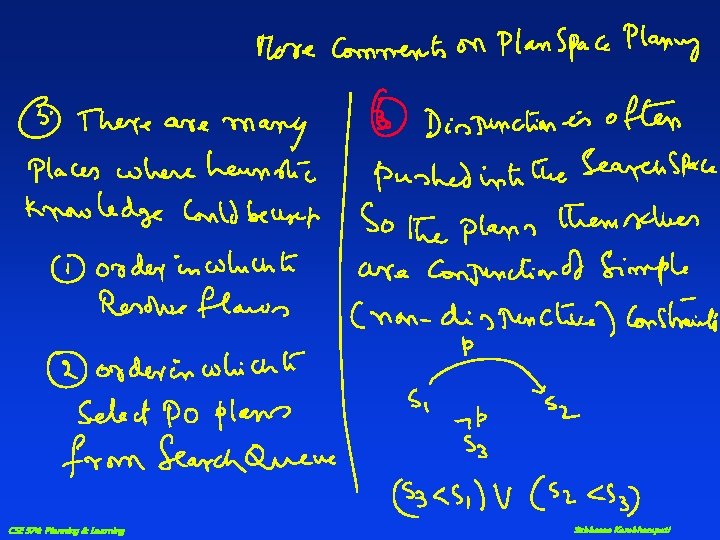 More Comments on Plan Space Planning
5. There are many
Places where heuristic
knowledge could be used
① order in which to
Resolve flaws
② order in which to
Select PO plans
from Search Queue
6 Disjunction is often
pushed into the Search Space
So the plans themselves
are Conjunction of Simple
(non-disjunctive) Constraints
p
S1 S2
¬p
S3
(S3 < S1) ∨ (S2 < S3)
CSE 574: Planning & Learning
Subbarao Kambhampati